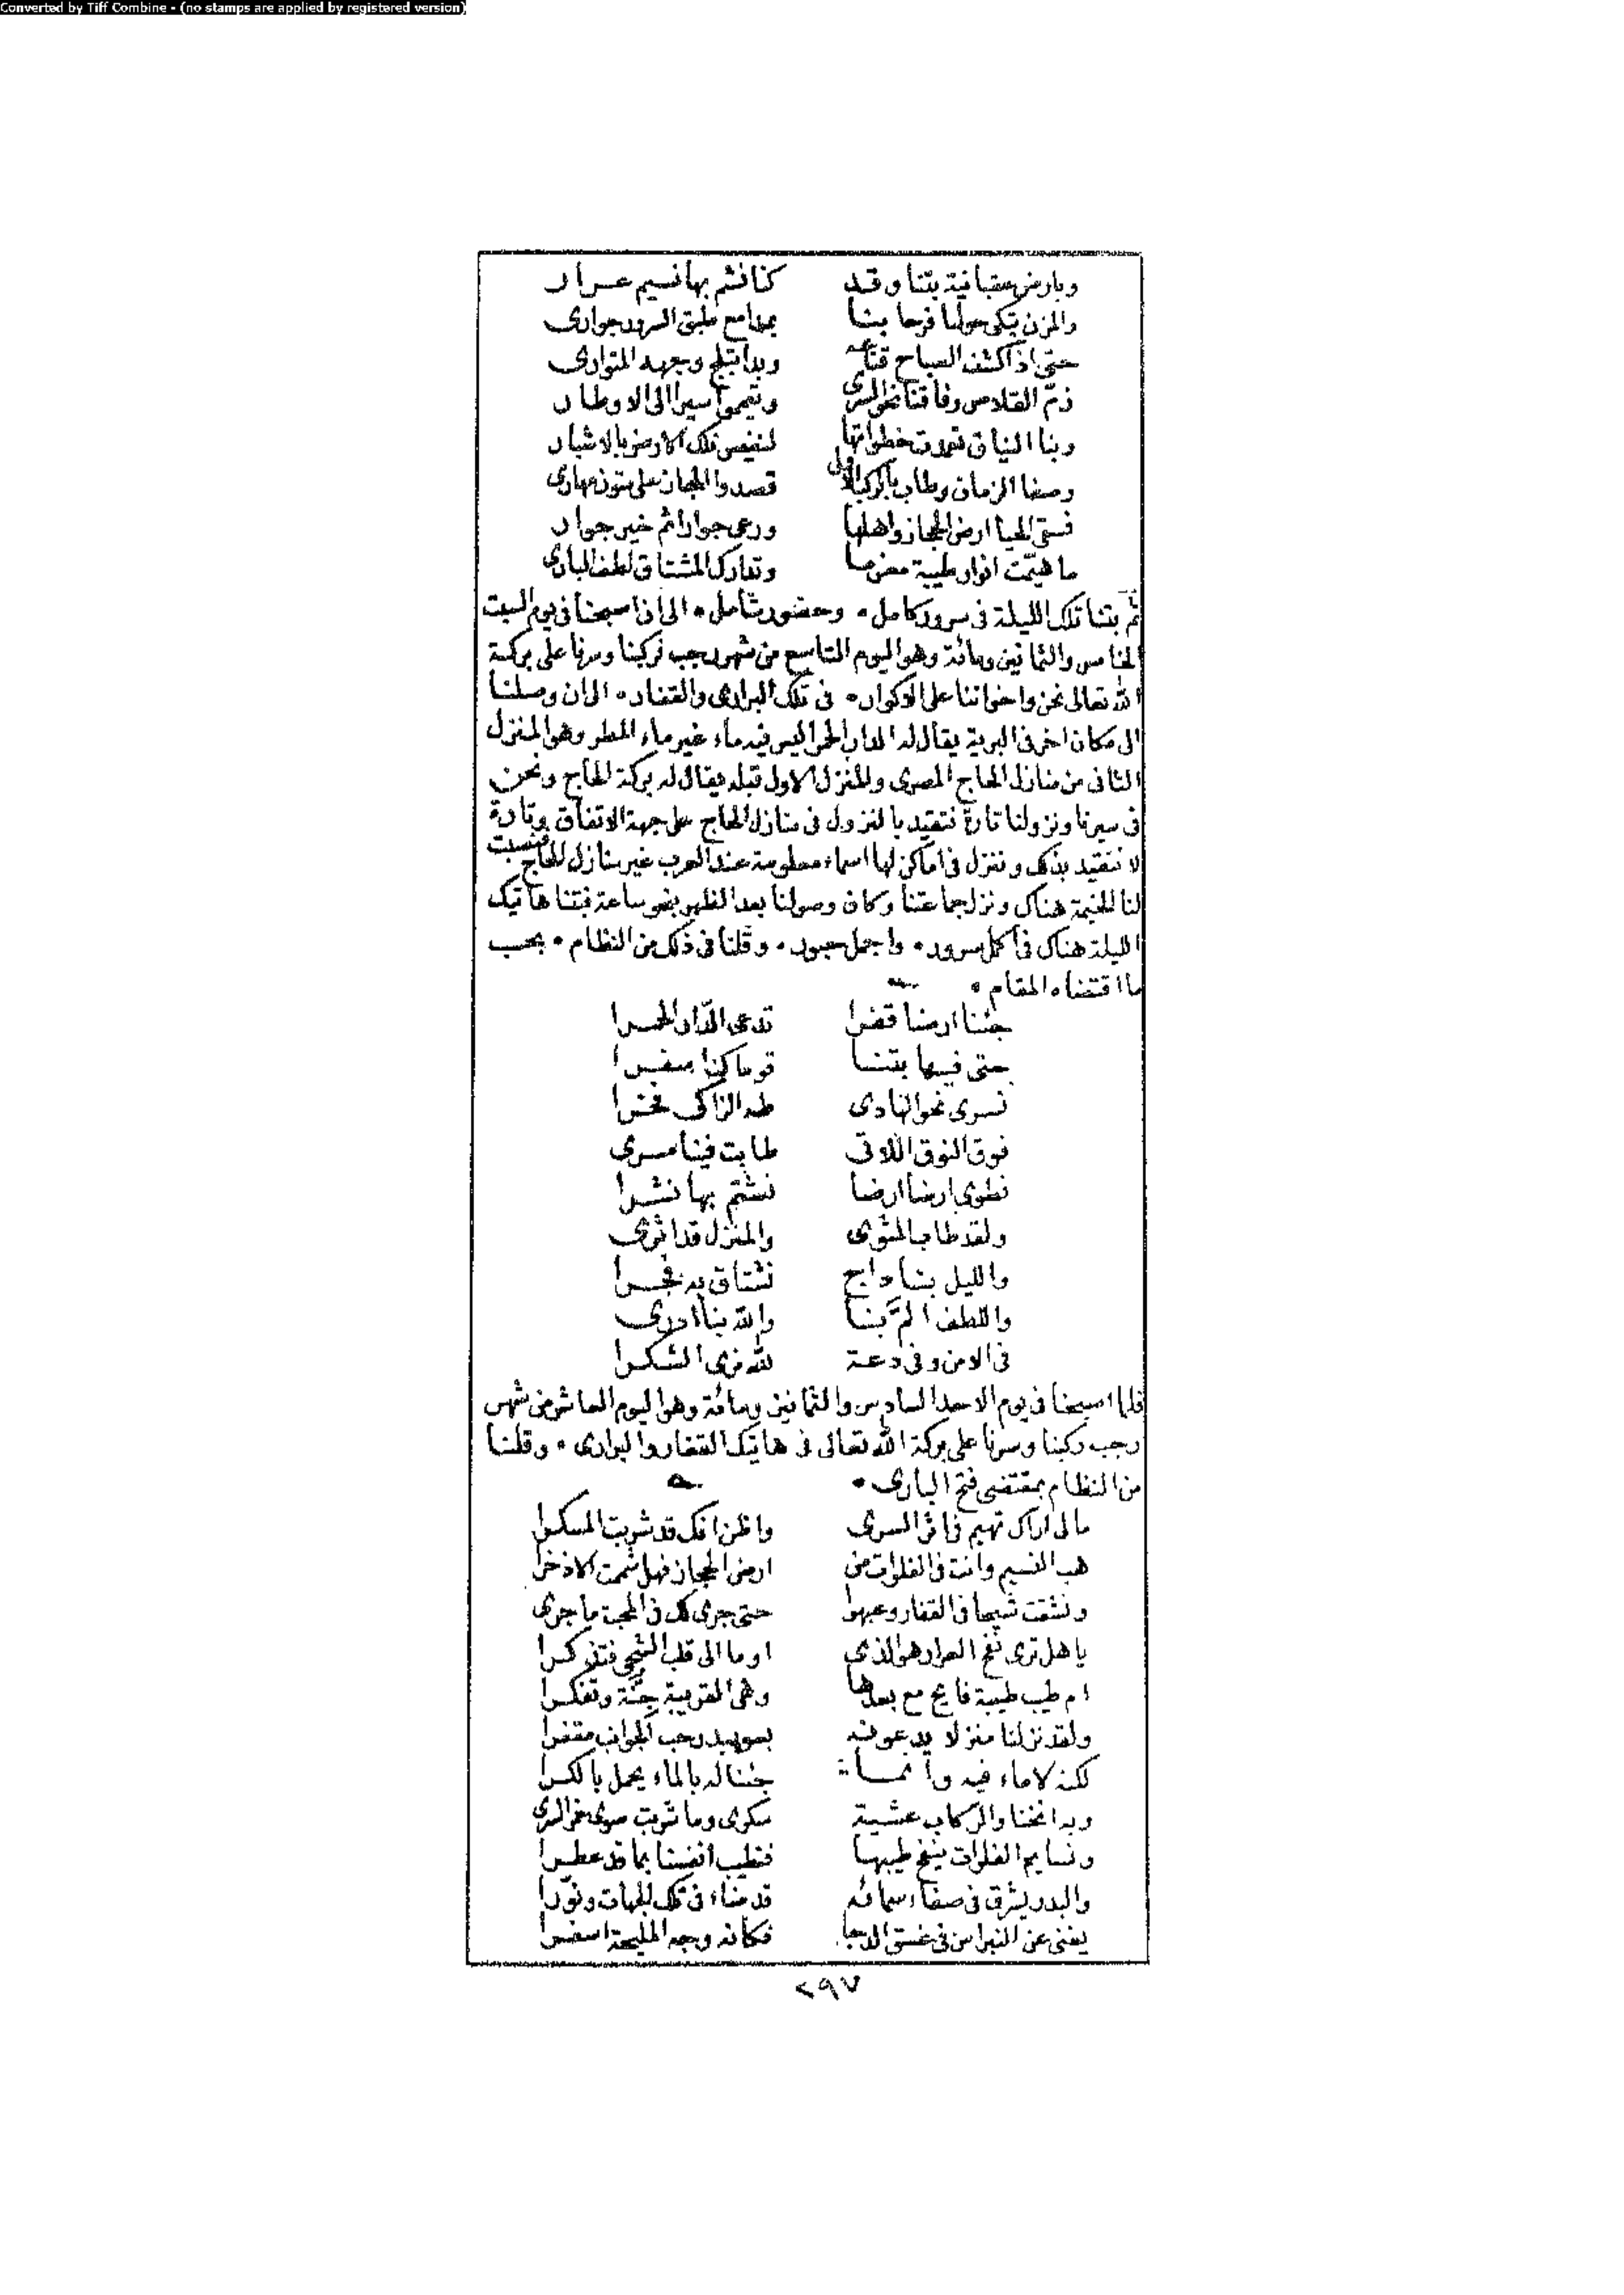 Converted by Tiff Combine - (no stamps are applied by registered version)
وبارض عقبانية بتنا وقد كنا نشم بها نسيم عرار
والمزن تبكي حولنا فرحا بنا بمدامع طبق السرور جوارى
حتى اذا كشف الصباح قناعه وبدا تبلج وجهه المتوارى
زمّ القلاص رفاقنا نحو السرى وتيمموا سيرا الى الاوطار
وبنا النياق تمددت خطواتها لنقيس تلك الارض بالاشبار
وصفا الزمان وطاب بالركب الاولى قصدوا الحجاز على متون مهارى
فسقى الحيا ارض الحجاز واهلها ورعى جوارا ثم خير جوار
ما هيّمت انوار طيبة مغرما وتدارك المشتاق لطف البارى
ثم بتنا تلك الليلة في سرور كامل • وحضور شامل • الى ان اصبحنا في يوم السبت
الخامس والثمانين ومائة وهو اليوم التاسع من شهر رجب فركبنا وسرنا على بركة
الله تعالى نحن واخواننا على الاكوار • فى تلك البرارى والقفار • الى ان وصلنا
الى مكان اخر فى البرية يقال له الدار الحمرا ليس فيه ماء غير ماء المطر وهو المنزل
الثانى من منازل الحاج المصرى والمنزل الاول قبله يقال له بركة الحاج ونحن
فى سيرنا ونزولنا تارة نتقيد بالنزول فى منازل الحاج على جهة الاتفاق وتارة
لا نتقيد بذلك وننزل فى اماكن لها اسماء معلومة عند العرب غير منازل الحاج فنصبت
لنا الخيمة هناك ونزل جماعتنا وكان وصولنا بعد الظهر بنحو ساعة فبتنا هاتيك
الليلة هناك فى اكمل سرور • واجمل حبور • وقلنا فى ذلك من النظام • بحسب
ما اقتضاه المقام •
جئنا ارضا قفرا تدعى الدّار الحمرا
حتى فيها بتنا قوما كنا سفرا
نسرى نحو الهادى طه الزاكى فخرا
فوق النوق اللاتى طابت فينا مسرى
نطوى ارضا ارضا نشتم بها نشرا
ولقد طاب المثوى والمنزل قد اثرى
والليل بنا داج نشتاق به فجرا
واللطف المّ بنا والله بنا ادرى
فى الامن وفى دعة لله نرى الشكرا
فلما اصبحنا فى يوم الاحد السادس والثمانين ومائة وهو اليوم العاشر من شهر
رجب ركبنا وسرنا على بركة الله تعالى فى هاتيك القفار والبرارى • وقلنا
من النظام بمقتضى فتح البارى •
مالى اراك تهيم فى اثر السرى واظن انك قد شربت المسكرا
هب النسيم وانت فى الفلوات من ارض الحجاز فهل شممت الاذخرا
ونشقت شيحا فى القفار وعبهرا حتى جرى لك فى المحبة ما جرى
يا هل ترى نفح العرار هو الذى اوما الى قلب الشجى فتذكرا
ام طيب طيبة فايح مع بعدها وهى القريبة جنّة وتفكرا
ولقد نزلنا منزلا يدعونه بعويبد رحب الجوانب مقفرا
لكنه لا ماء فيه وانما جئنا له بالماء يحمل بالكرا
وبه انخنا والركاب عشية سكرى وما شربت سوى خمر السرى
ونسايم الفلوات ينفح طيبها فتطيب انفسنا بما قد عطرا
والبدر يشرق فى صفاء سمائه قد ضاء فى تلك الجهات ونوّرا
يغنى عن النبراس فى غسق الدجا فكانه وجه المليحة اسفرا
٢٩٧